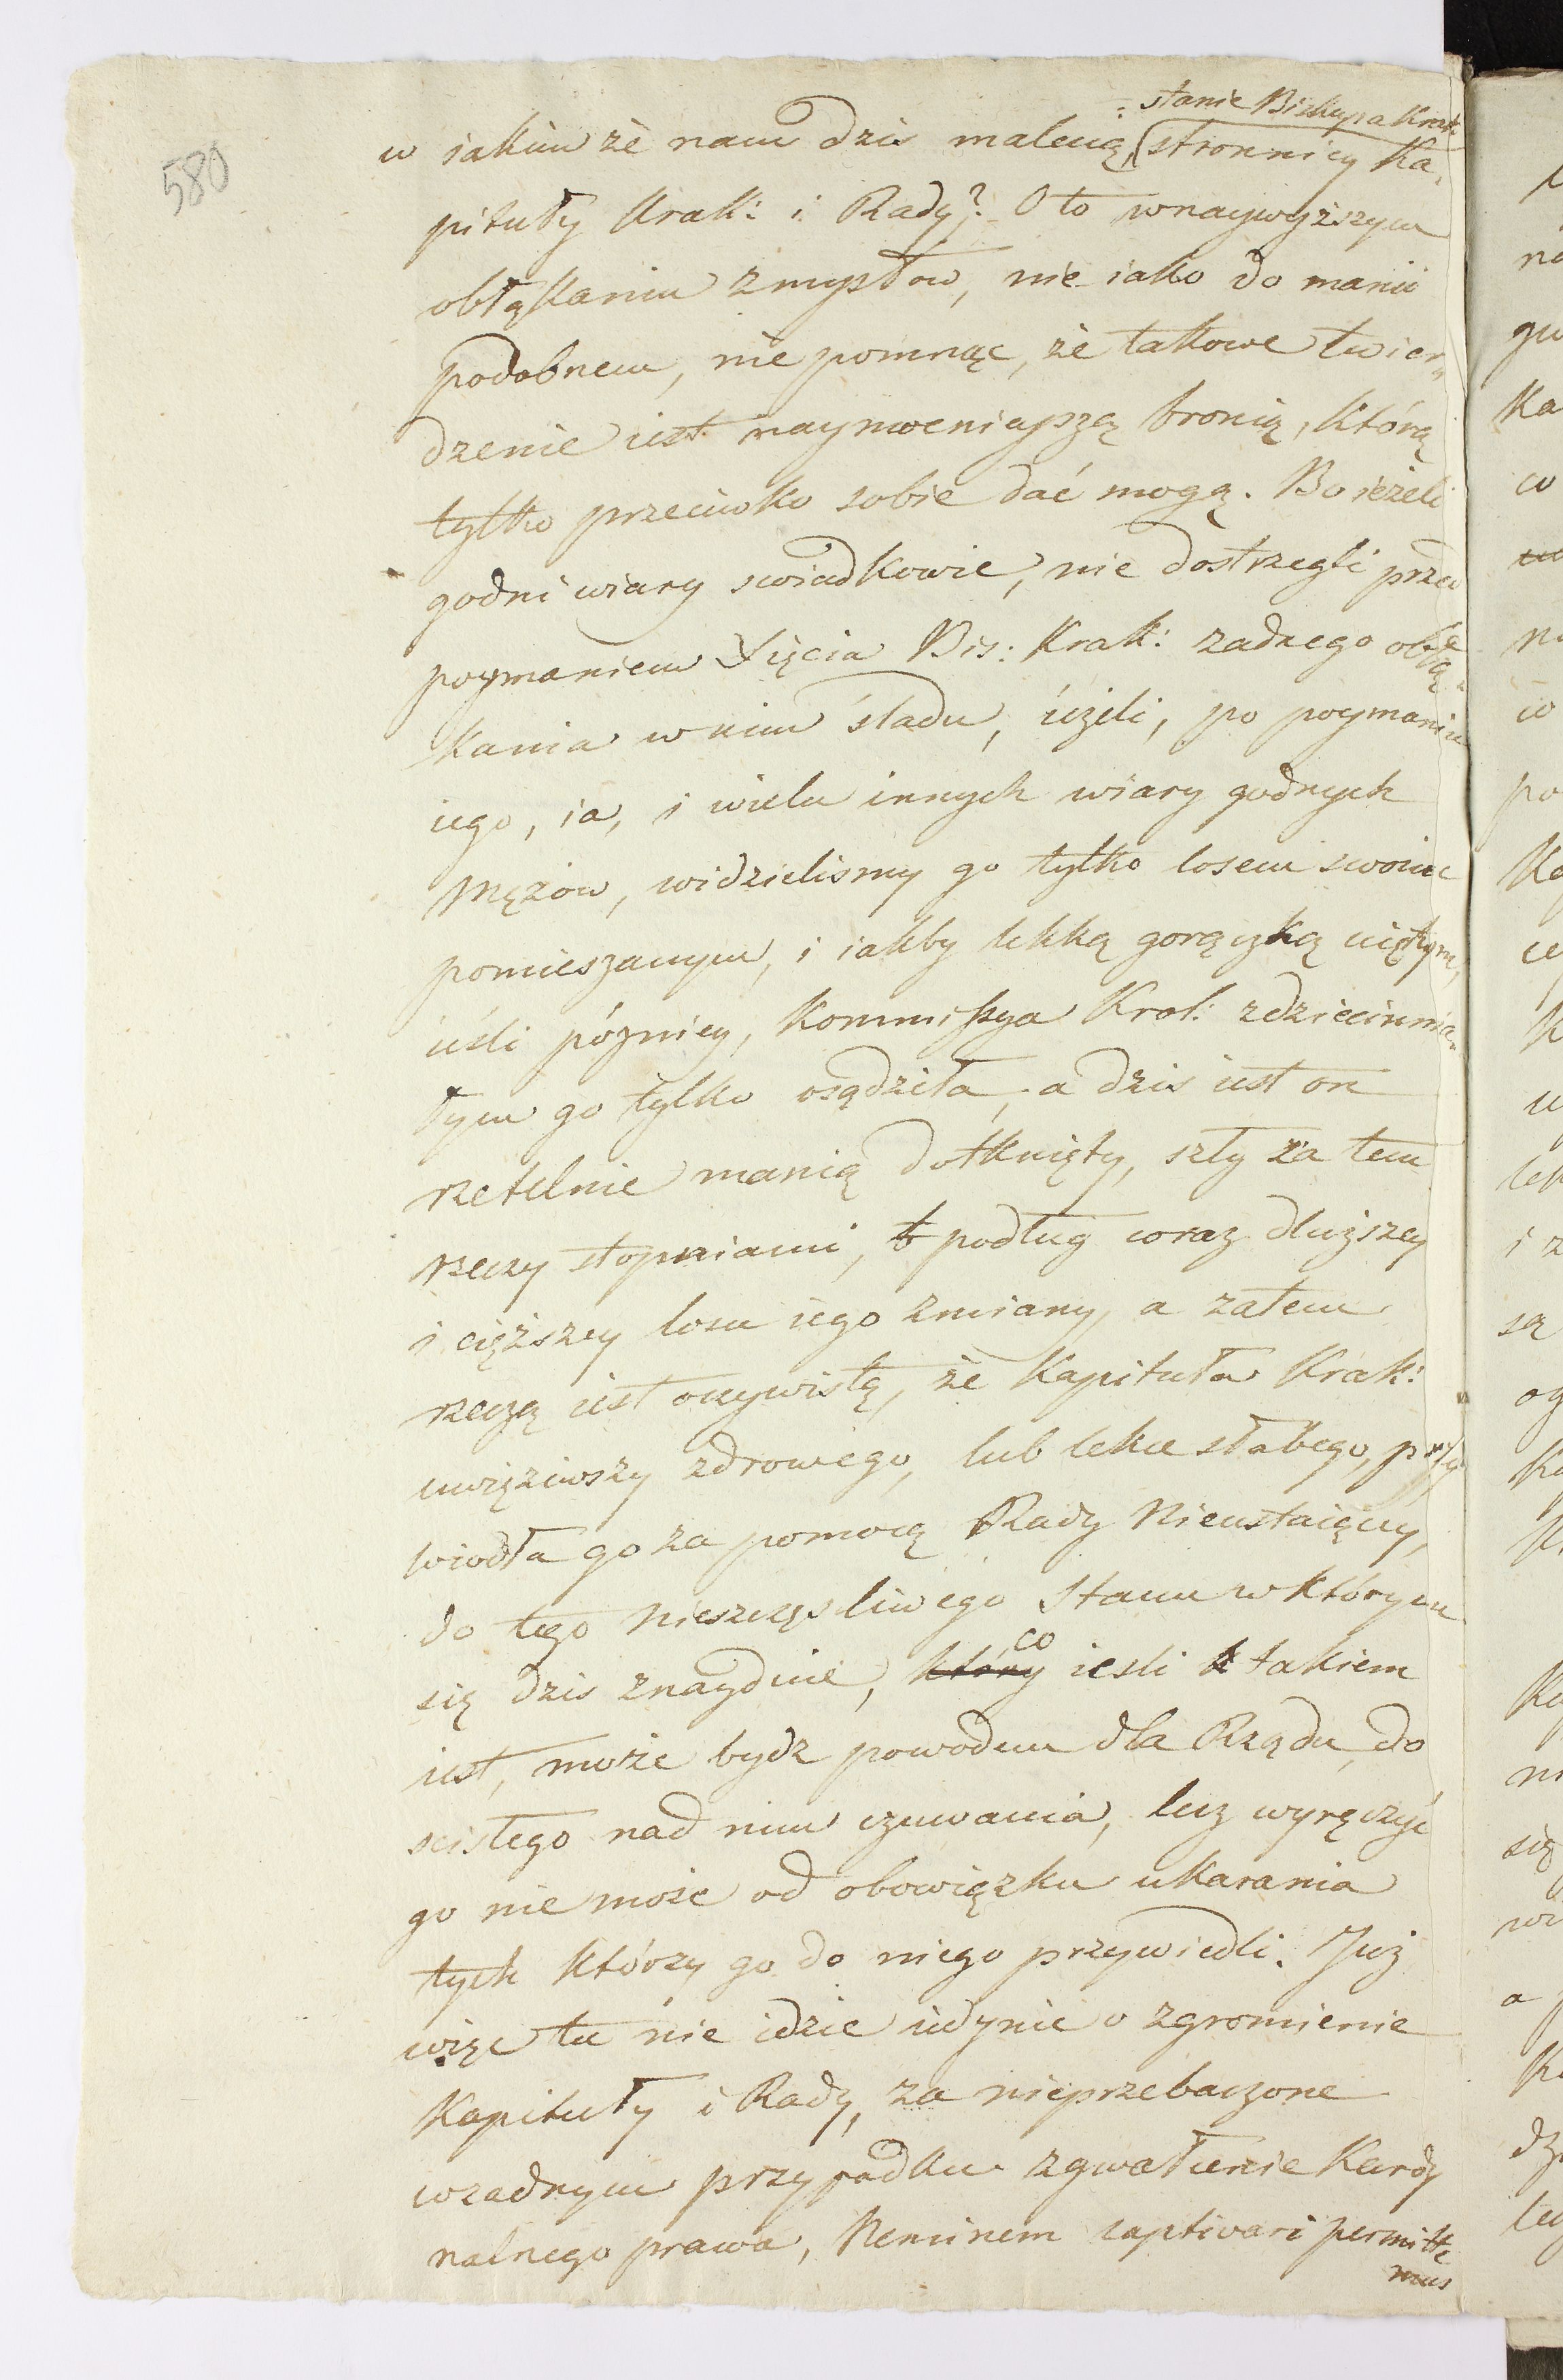 580
: stanie Biskupa Krak:
w iakim że nam dzis malcuią stronnicy Ka,
pituły Krak: i Rady? O to w naywyższym
obłąkaniu zmysłow, nie iako do manii
podobnem, nie pomnąc, że takowe twier„
dzenie iest naymocnieyszą bronią, którą
tylko przeciwko sobie dać mogą. Bo ieżeli
godni wiary swiadkowie, nie dostrzegli przed
poymaniem Xięcia Bis: Krak: żadnego obłą-
kania w nim śladu, ieżeli, po poymaniu
iego, ia, i wielu innych wiary godnych
Mężow, widzielismy go tylko losem swoim
pomieszanym, i iakby lekką gorączką ciętym,
ieśli pózniey, Kommissya Krol: zdziecinnia-
łym go tylko osądziła, a dzis iest on
rzetelnie manią dotknięty, szły za tem
rzeczy stopniami, podług coraz dłuższey
i cięższey losu iego zmiany, a zatem
rzeczą iest oczywistą, że Kapituła Krak:
uwięziwszy zdrowego, lub lekce słabego, przy
wiodła go za pomocą Rady Nieustaiącey,
do tego nieszczęsliwego stanu w którym
co
się dzis znayduie, który iesli takiem
iest, może bydz powodem dla Rządu, do
scisłego nad nim czuwania, lecz wyręczyć
go nie może od obowiązku ukarania
tych którzy go do niego przywiedli. Już
więc tu nie idzie iedynie o zgromienie
Kapituły i Rady, za nieprzebaczone
w żadnym przypadku zgwałcenie Kardy
nalnego prawa, Neminem captivari permitte
mus